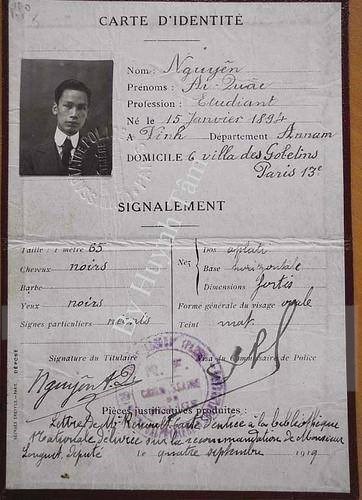 CARTE D'IDENTITÉ
Nom: Nguyễn
Prénoms: Ai Quâc
Profession: Etudiant
Né le 15 Janvier 1894
A Vinh Département Annam
DOMICILE 6 villa des Gobelins
Paris 13e
SIGNALEMENT
Taille: 1 mètre 65
Cheveux noirs
Barbe
Yeux noirs
Signes particuliers néants
Nez
Dos aplati
Base horizontale
Dimensions fortes
Forme générale du visage ovale
Teint mat
Signature du Titulaire
Visa du Commissaire de Police
Nguyễn A.Q
Pièces justificatives produites:
Lettre de Mr Renoult carte d'entrée à la bibliothèque
Nationale délivrée sur la recommandation de Monsieur
Longuet, député le quatre septembre 1919
By Huynh Tâm